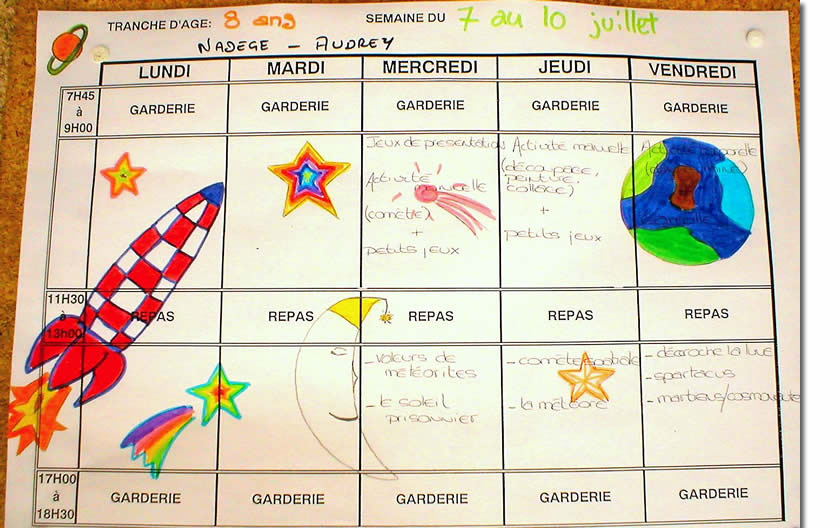 TRANCHE D'AGE: 8 ans SEMAINE DU 7 au 10 juillet
NADEGE - AUDREY
LUNDI MARDI MERCREDI JEUDI VENDREDI
7H45 à 9H00
GARDERIE GARDERIE GARDERIE GARDERIE GARDERIE
Jeux de présentation
Activité manuelle
(comète)
+
petits jeux
Activité manuelle
(découpage,
peinture,
collage)
+
petits jeux
11H30 à 13h00
REPAS REPAS REPAS REPAS REPAS
- voleurs de
météorites
- le soleil
prisonnier
- comète spatiale
- la météore
- décroche la lune
- spartacus
- martiens/cosmonaute
17H00 à 18H30
GARDERIE GARDERIE GARDERIE GARDERIE GARDERIE